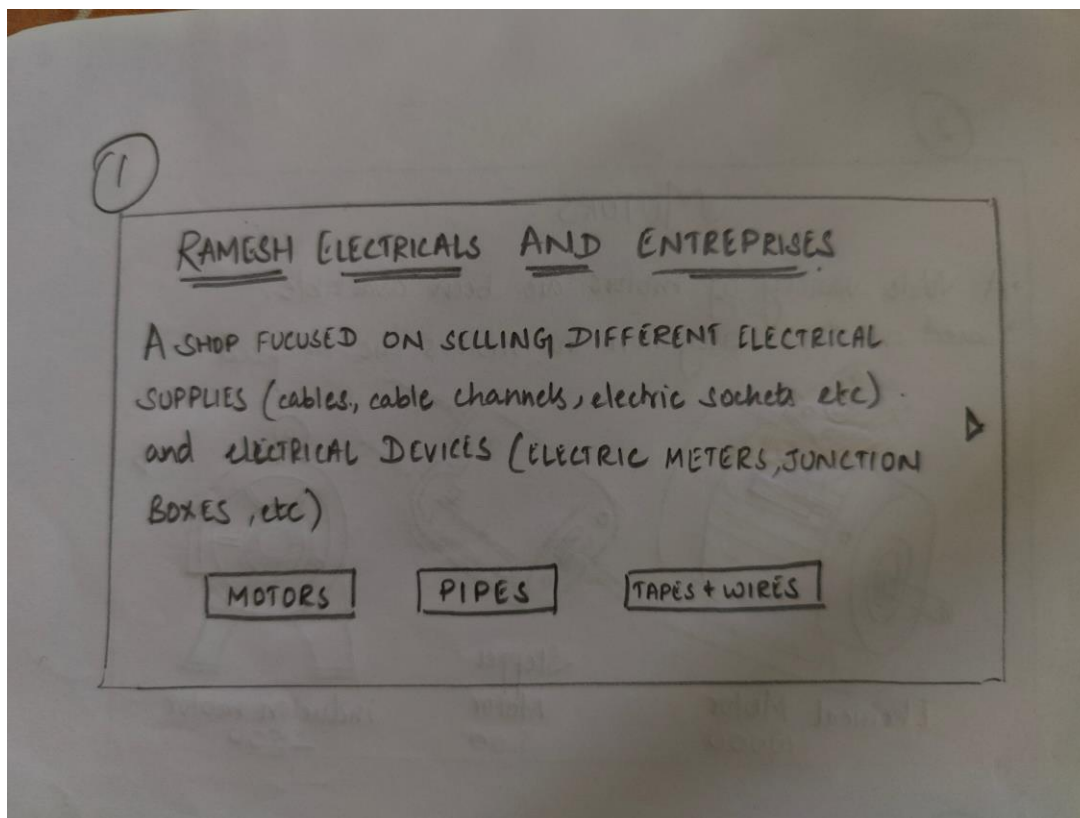 1
RAMESH ELECTRICALS AND ENTREPRISES
A SHOP FUCUSED ON SELLING DIFFERENT ELECTRICAL
SUPPLIES (cables, cable channels, electric sockets etc)
and ELECTRICAL DEVICES (ELECTRIC METERS, JUNCTION
BOXES, etc)
MOTORS PIPES TAPES + WIRES